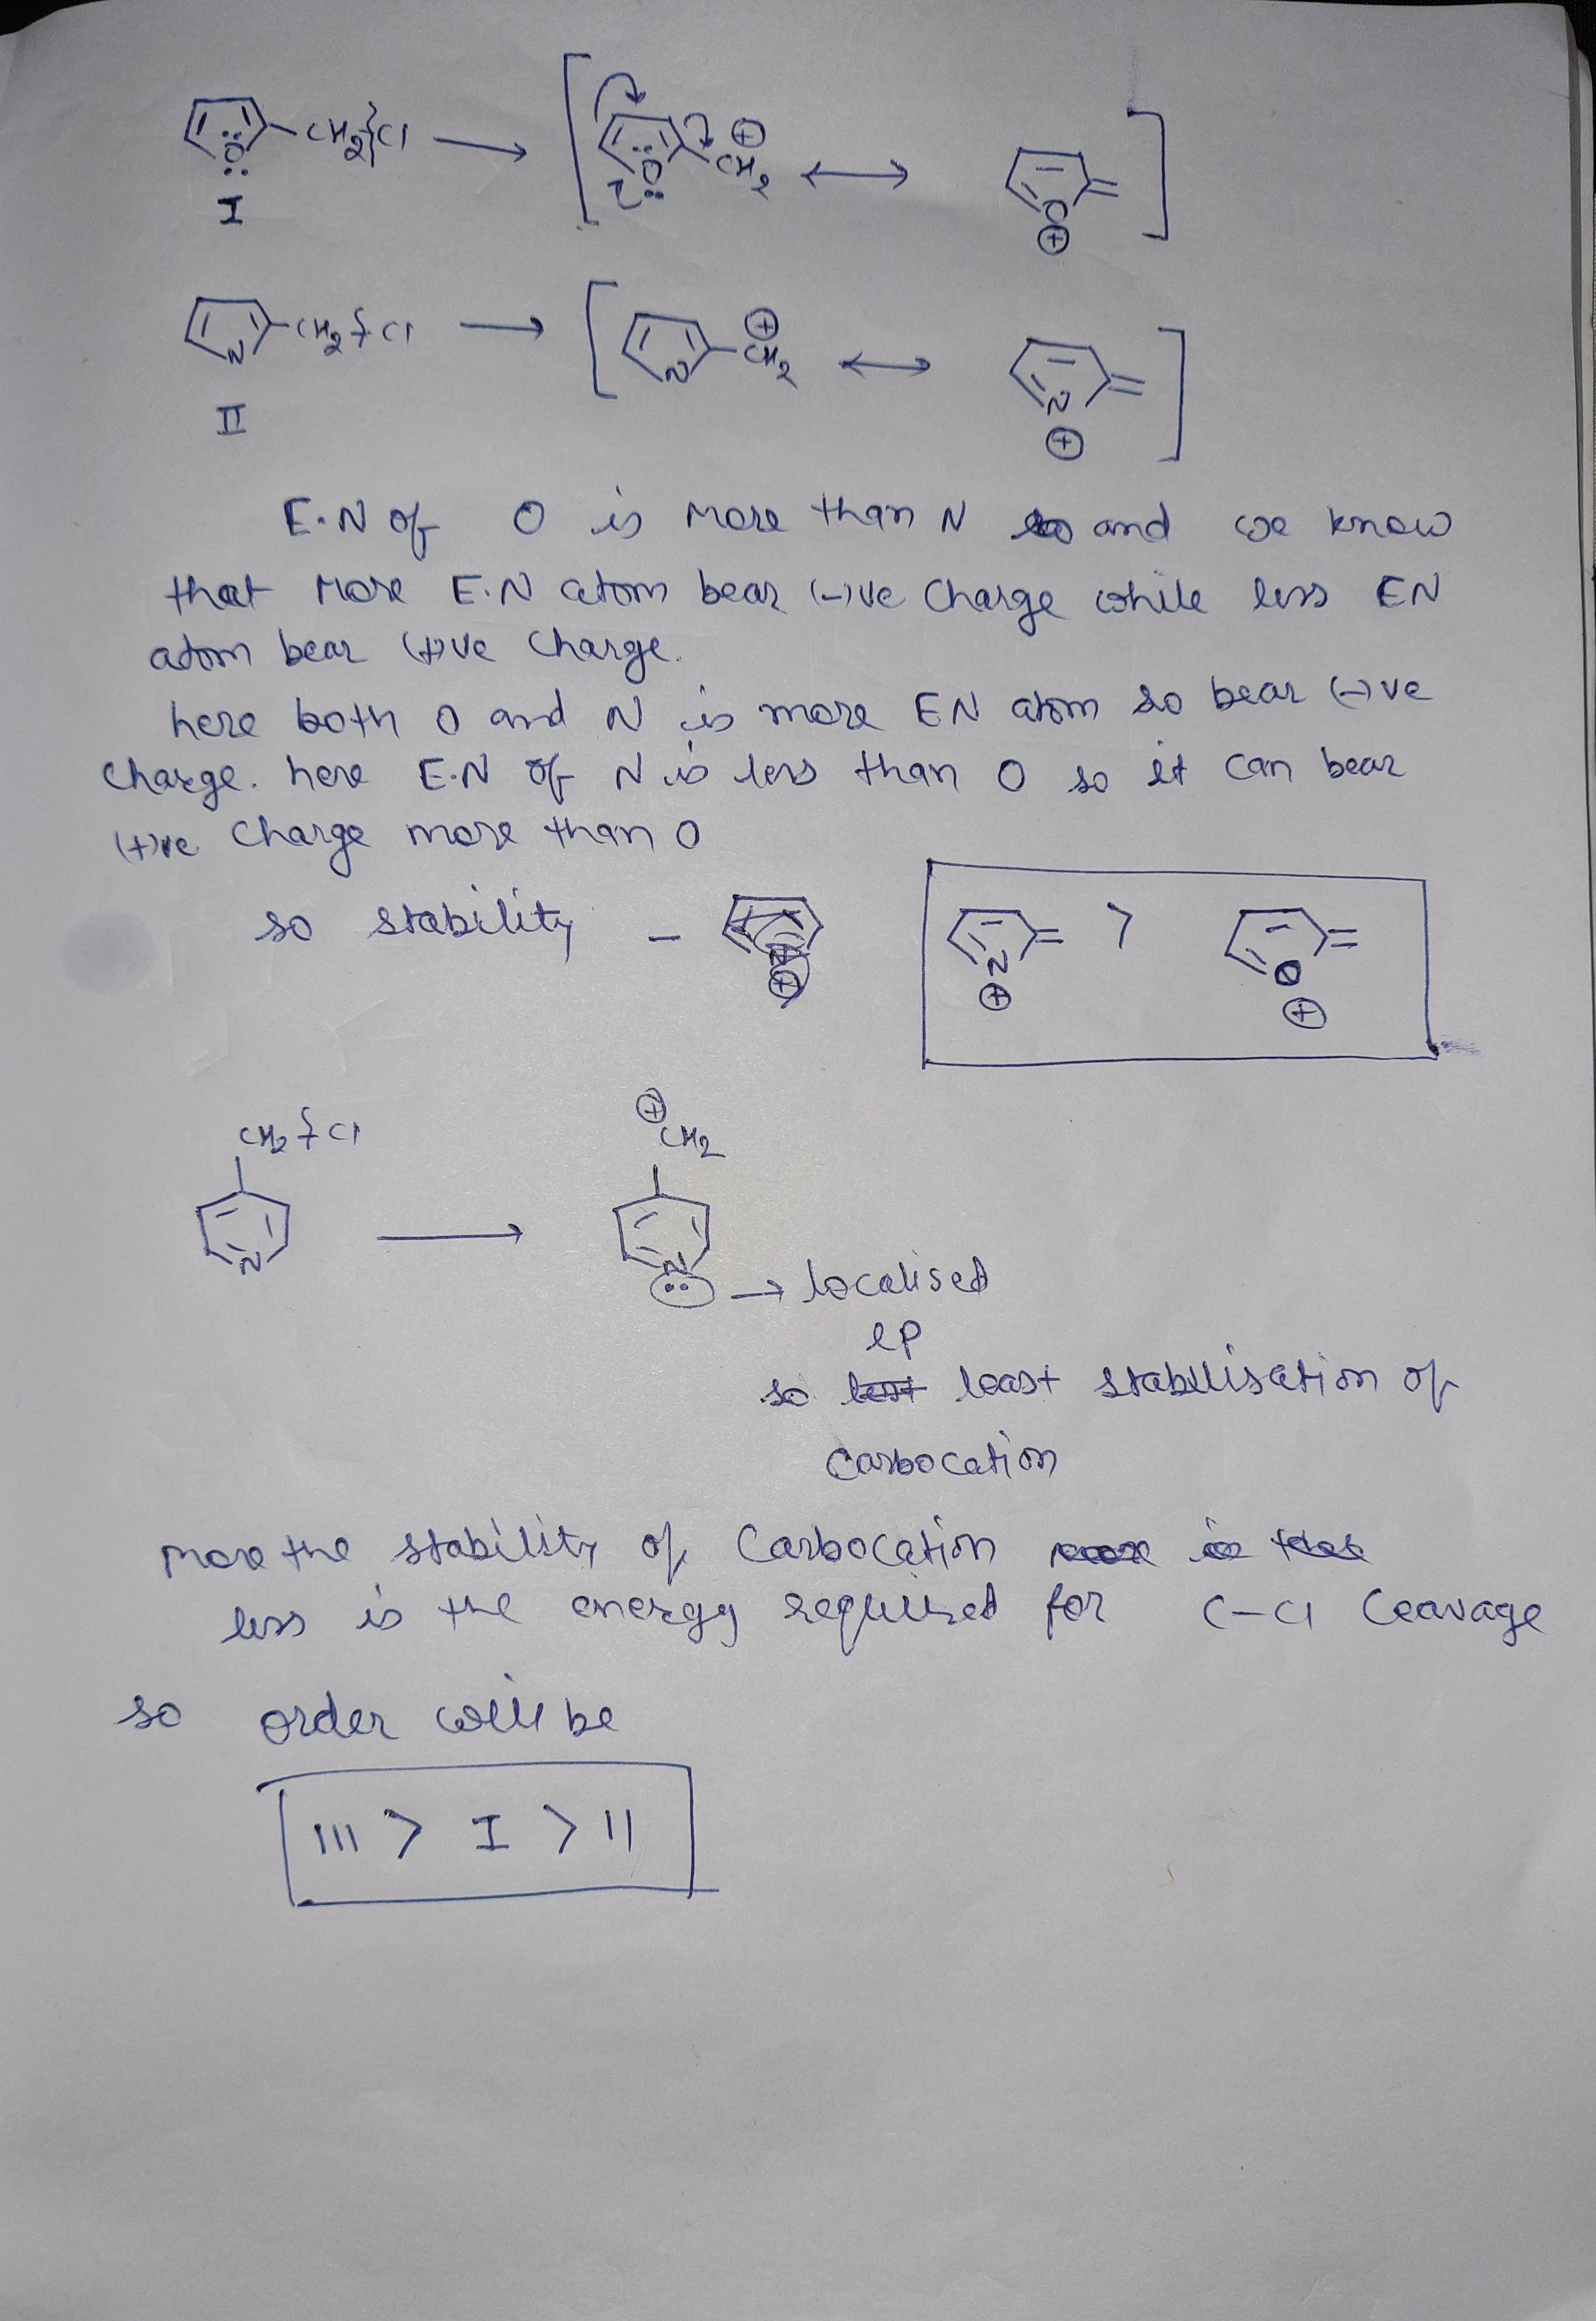 CH2 Cl ⟶ [ CH2 ⊕ ⟷ O ⊕ ]
O
I
CH2 Cl ⟶ [ N CH2 ⊕ ⟷ N ⊕ ]
N
II
E.N of O is more than N and we know
that more E.N atom bear (-)ve charge while less EN
atom bear (+)ve charge.
here both O and N is more EN atom so bear (-)ve
charge. here E.N of N is less than O so it can bear
(+)ve charge more than O
so stability -
N ⊕ > O ⊕
CH2 Cl
N
⟶
⊕ CH2
N
→ localised
lp
so least stabilisation of
carbocation
more the stability of carbocation
less is the energy required for C-Cl Ceavage
so order will be
III > I > II